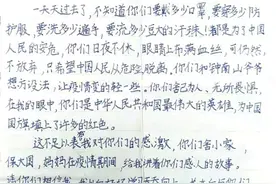 一天天过去了，不知道你们要戴多少口罩，要穿多少防
护服，要洗多少遍手，要流多少豆大的汗珠！都是为了中国
人民的安危，你们日夜不休，眼睛上布满血丝，可仍然
不放弃，只希望中国人民从危险脱离，你们和钟南山爷爷
想方设法，让疫情变的轻一些，你们舍己为人、无所畏惧，
在我的眼中，你们是中华人民共和国最伟大的英雄，为中国
国旗填上了许多的红色。
这不足以表我对你们的感激，你们舍小家，
保大国，妈妈在疫情期间，给我讲着你们感人的故事。